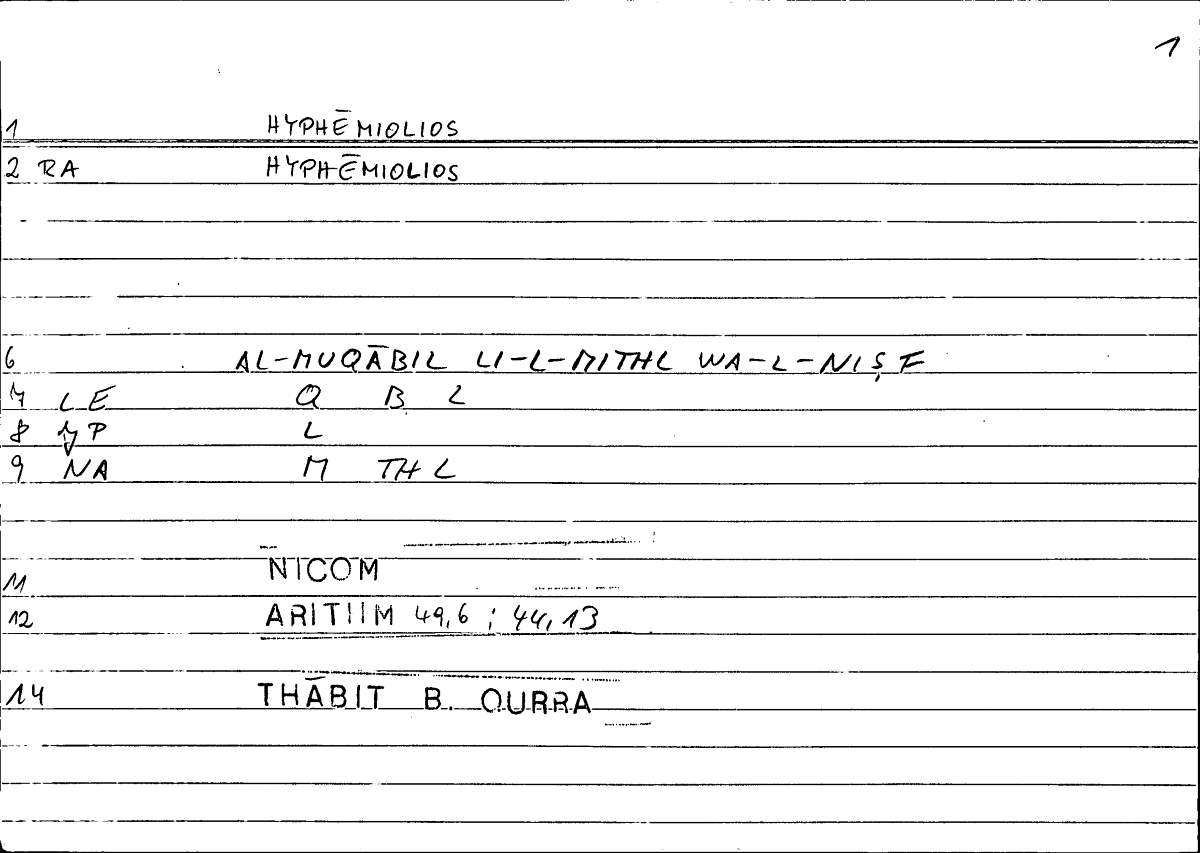 1
1 HYPHĒMIOLIOS
2 RA HYPHĒMIOLIOS
6 AL-MUQĀBIL LI-L-MITHL WA-L-NIṢF
7 LE Q B L
8 YP L
9 NA M TH L
11 NICOM
12 ARITIIM 49,6 ; 44,13
14 THĀBIT B. QURRA